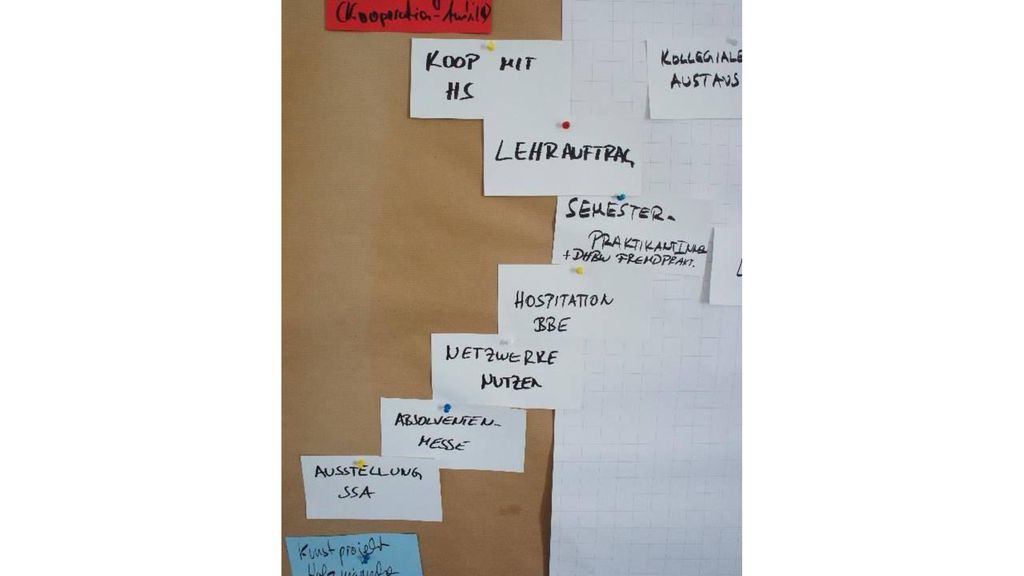 (Kooperation
KOOP MIT
HS
KOLLEGIALE
AUSTAUS
LEHRAUFTRAG
SEMESTER-
+ DHBW FREMDPRAKT.
HOSPITATION
BBE
NETZWERKE
NUTZEN
ABSOLVENTEN-
MESSE
AUSSTELLUNG
SSA
Kunstprojekt